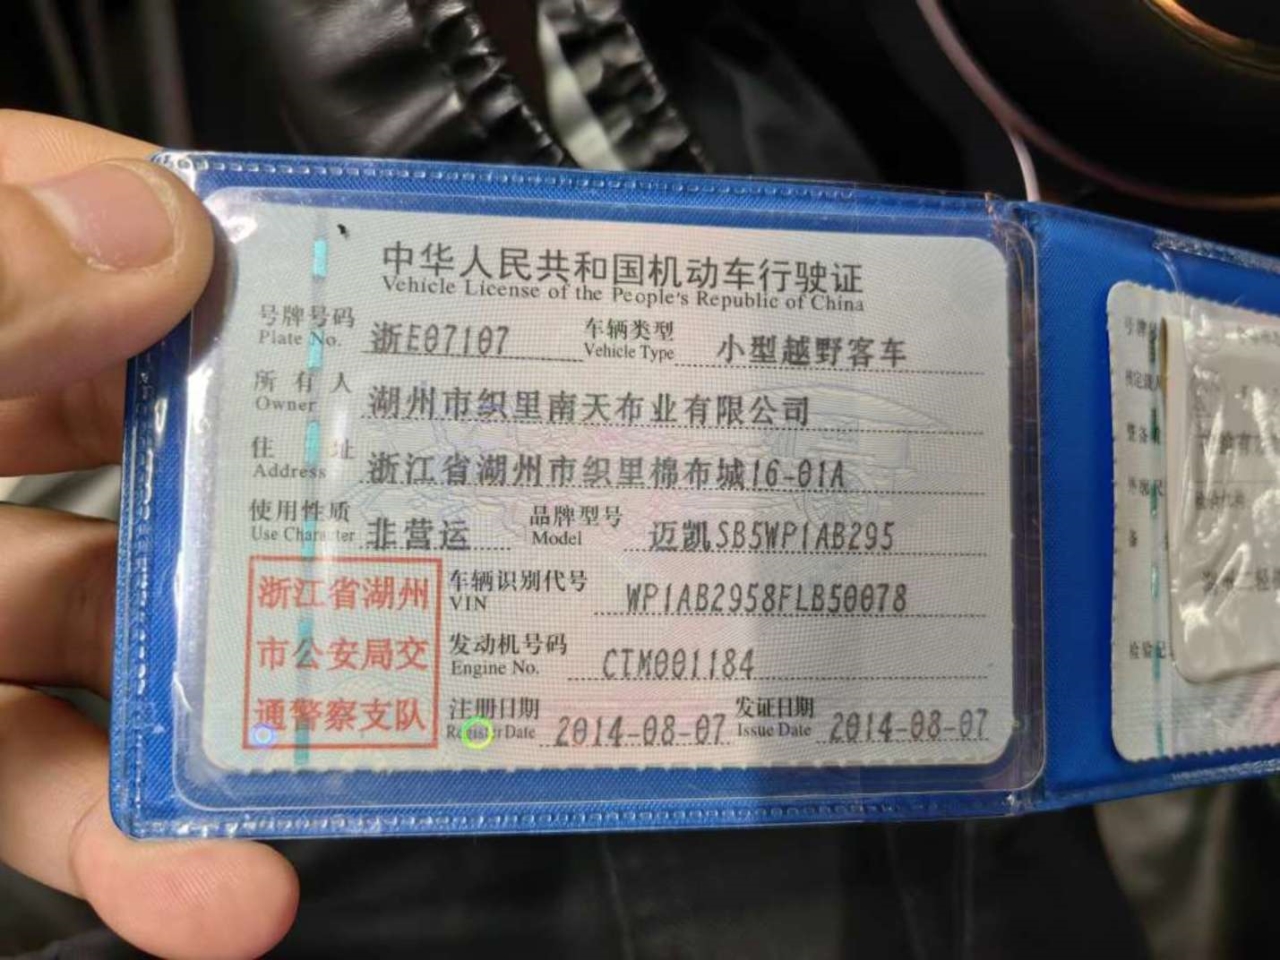 中华人民共和国机动车行驶证
Vehicle License of the People's Republic of China
号牌号码 浙E07107 车辆类型 小型越野客车
Plate No. Vehicle Type
所有人 湖州市织里南天布业有限公司
Owner
住址 浙江省湖州市织里棉布城16-01A
Address
使用性质 非营运 品牌型号 迈凯SB5WP1AB295
Use Character Model
浙江省湖州
市公安局交
通警察支队
车辆识别代号 WP1AB2958FLB50078
VIN
发动机号码 CTM001184
Engine No.
注册日期 2014-08-07 发证日期 2014-08-07
Register Date Issue Date